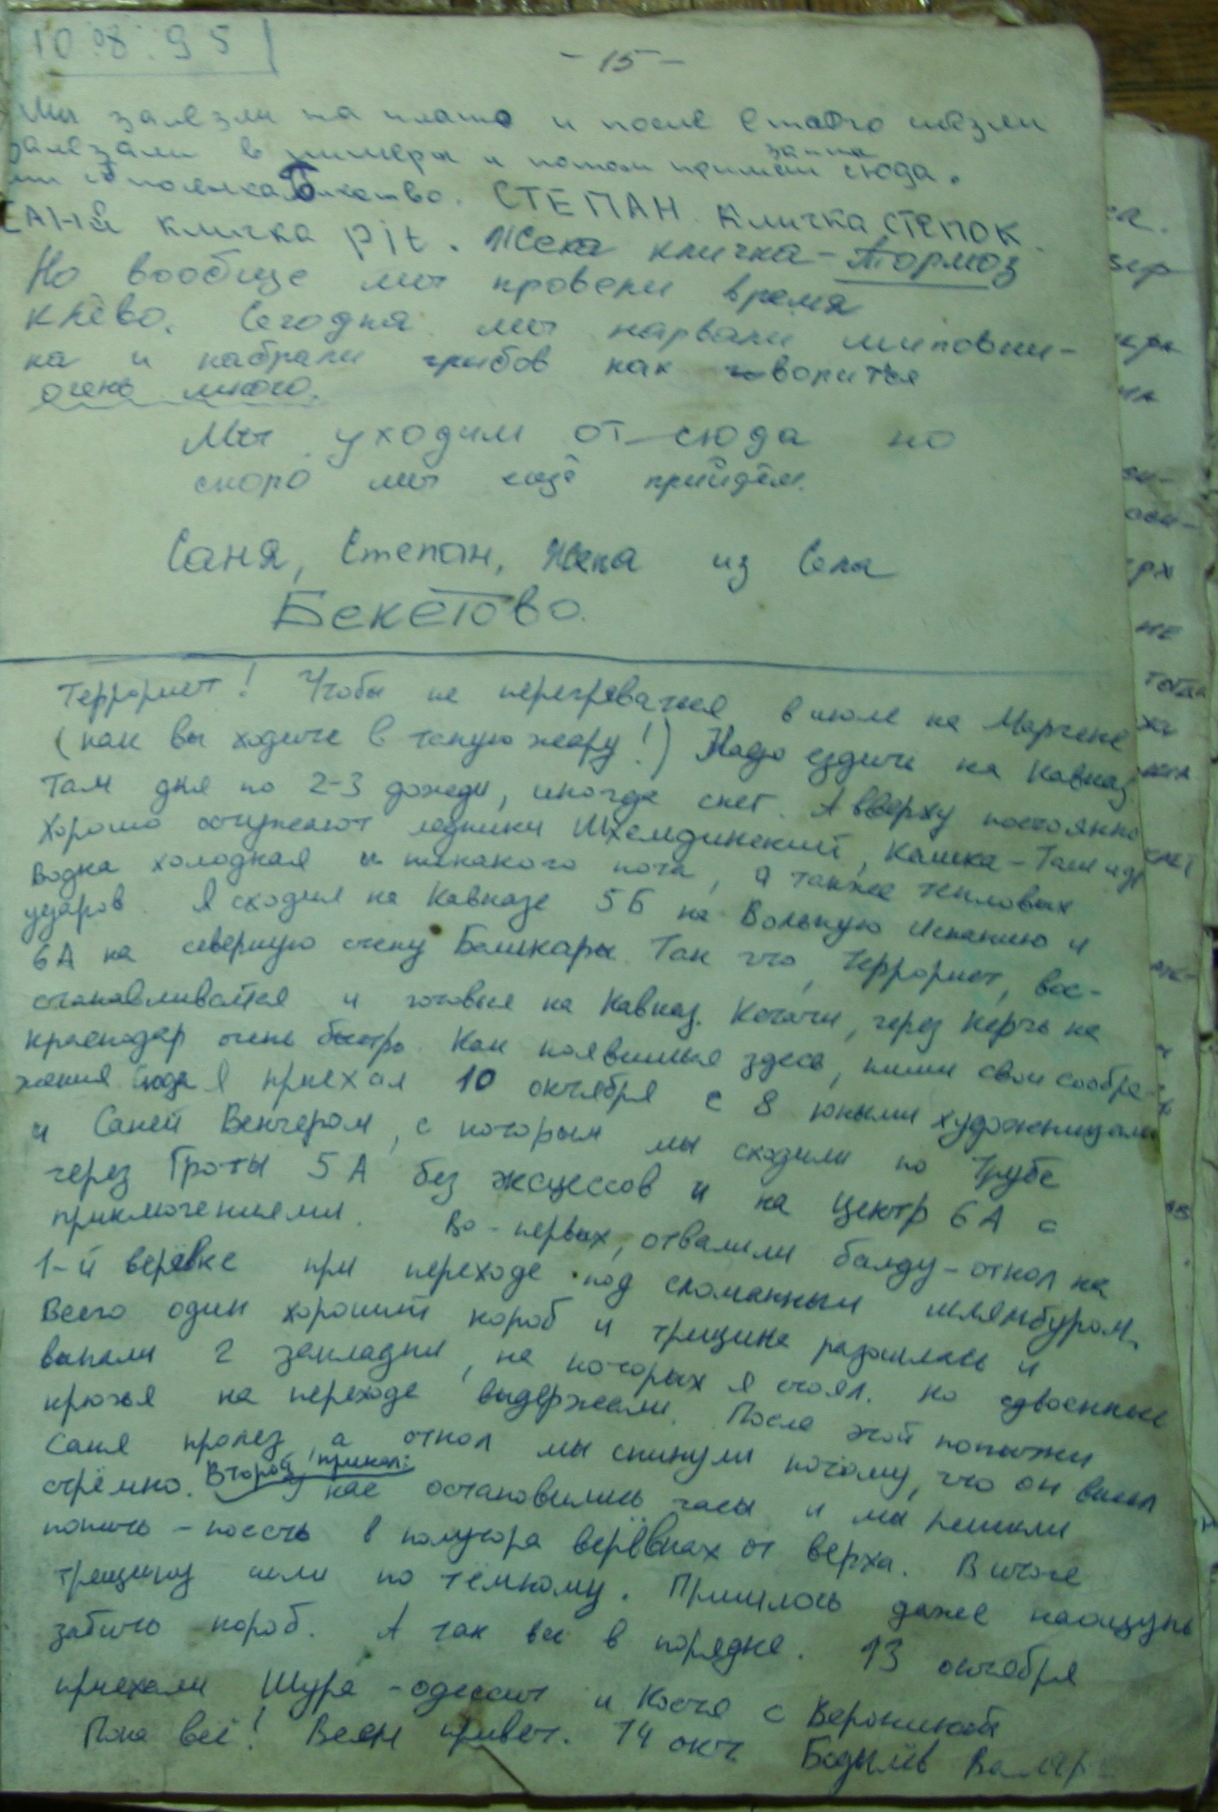 10.8.95
- 15 -
Мы залезли на плато и после етаого слезли
залезали в пищеры и потом пришли сюда.
СТЕПАН кличка СТЕПОК.
САНЯ кличка pit. Жека кличка - Тормоз
Но вообще мы провели время
клёво. Сегодня мы нарвали шиповни-
ка и набрали грибов как говориться
очень много.
Мы уходим от сюда но
скоро мы ещё прийдём.
Саня, Степан, Жека из Села
БЕКЕТОВО.
Террорист! Чтобы не перегреваться в июле на Марчеке
(как вы ходите в такую жару!) Надо ездить на Кавказ
Там дня по 2-3 дожди, иногда снег. А вверху постоянно
Хорошо остужают ледники Шхельдинский, Кашка-Таш и др
Водка холодная и никакого пота, а также тепловых
ударов. Я сходил на Кавказе 5Б на Вольную Испанию и
6А на северную стену Башкары. Так что, Террорист, вос-
станавливайся и готовься на Кавказ. Кстати, через Керчь на
Краснодар очень быстро. Как появишься здесь, пиши свои сообра-
жения сюда. Я приехал 10 октября с 8 юными художницами
и Саней Венчером, с которым мы сходили по Трубе
через Гроты 5А без эксцессов и на Центр 6А с
приключениями. Во-первых, отвалили балду-откол на
1-й верёвке при переходе под сломанным шлямбуром,
Всего один хороший короб и трещина разошлась и
выпали 2 закладки, на которых я стоял. Но сдвоенные
крючья на переходе выдержали. После этой попытки
Саня пролез, а откол мы скинули потому, что он висел
стрёмно. Второй прикол: У нас остановились часы и мы решили
попить-поесть в полутора верёвках от верха. В итоге
трещину шли по тёмному. Пришлось даже наощупь
забить короб. А так всё в порядке. 13 октября
приехали Шура-одессит и Костя с Вероникой
Пока всё! Всем привет. 14 окт. Бодылёв Валер